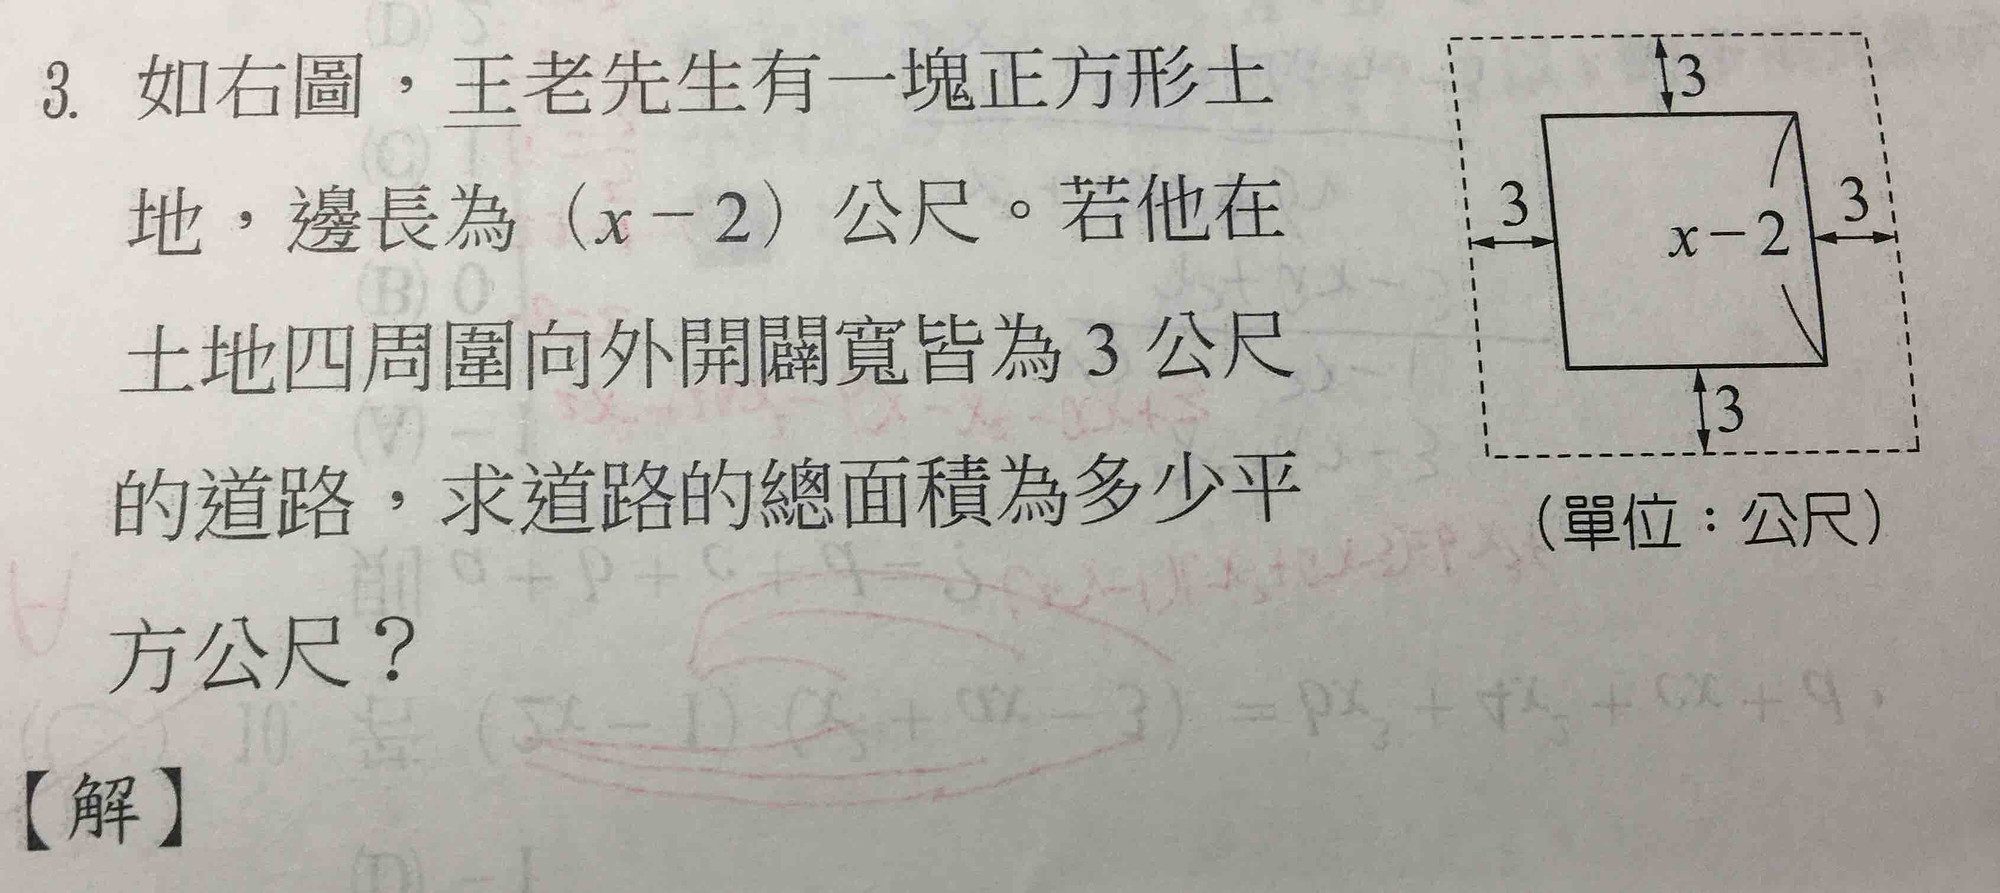 3. 如右圖，王老先生有一塊正方形土
地，邊長為（x－2）公尺。若他在
土地四周圍向外開闢寬皆為 3 公尺
的道路，求道路的總面積為多少平
方公尺？
【解】
3
3
x－2
3
3
（單位：公尺）